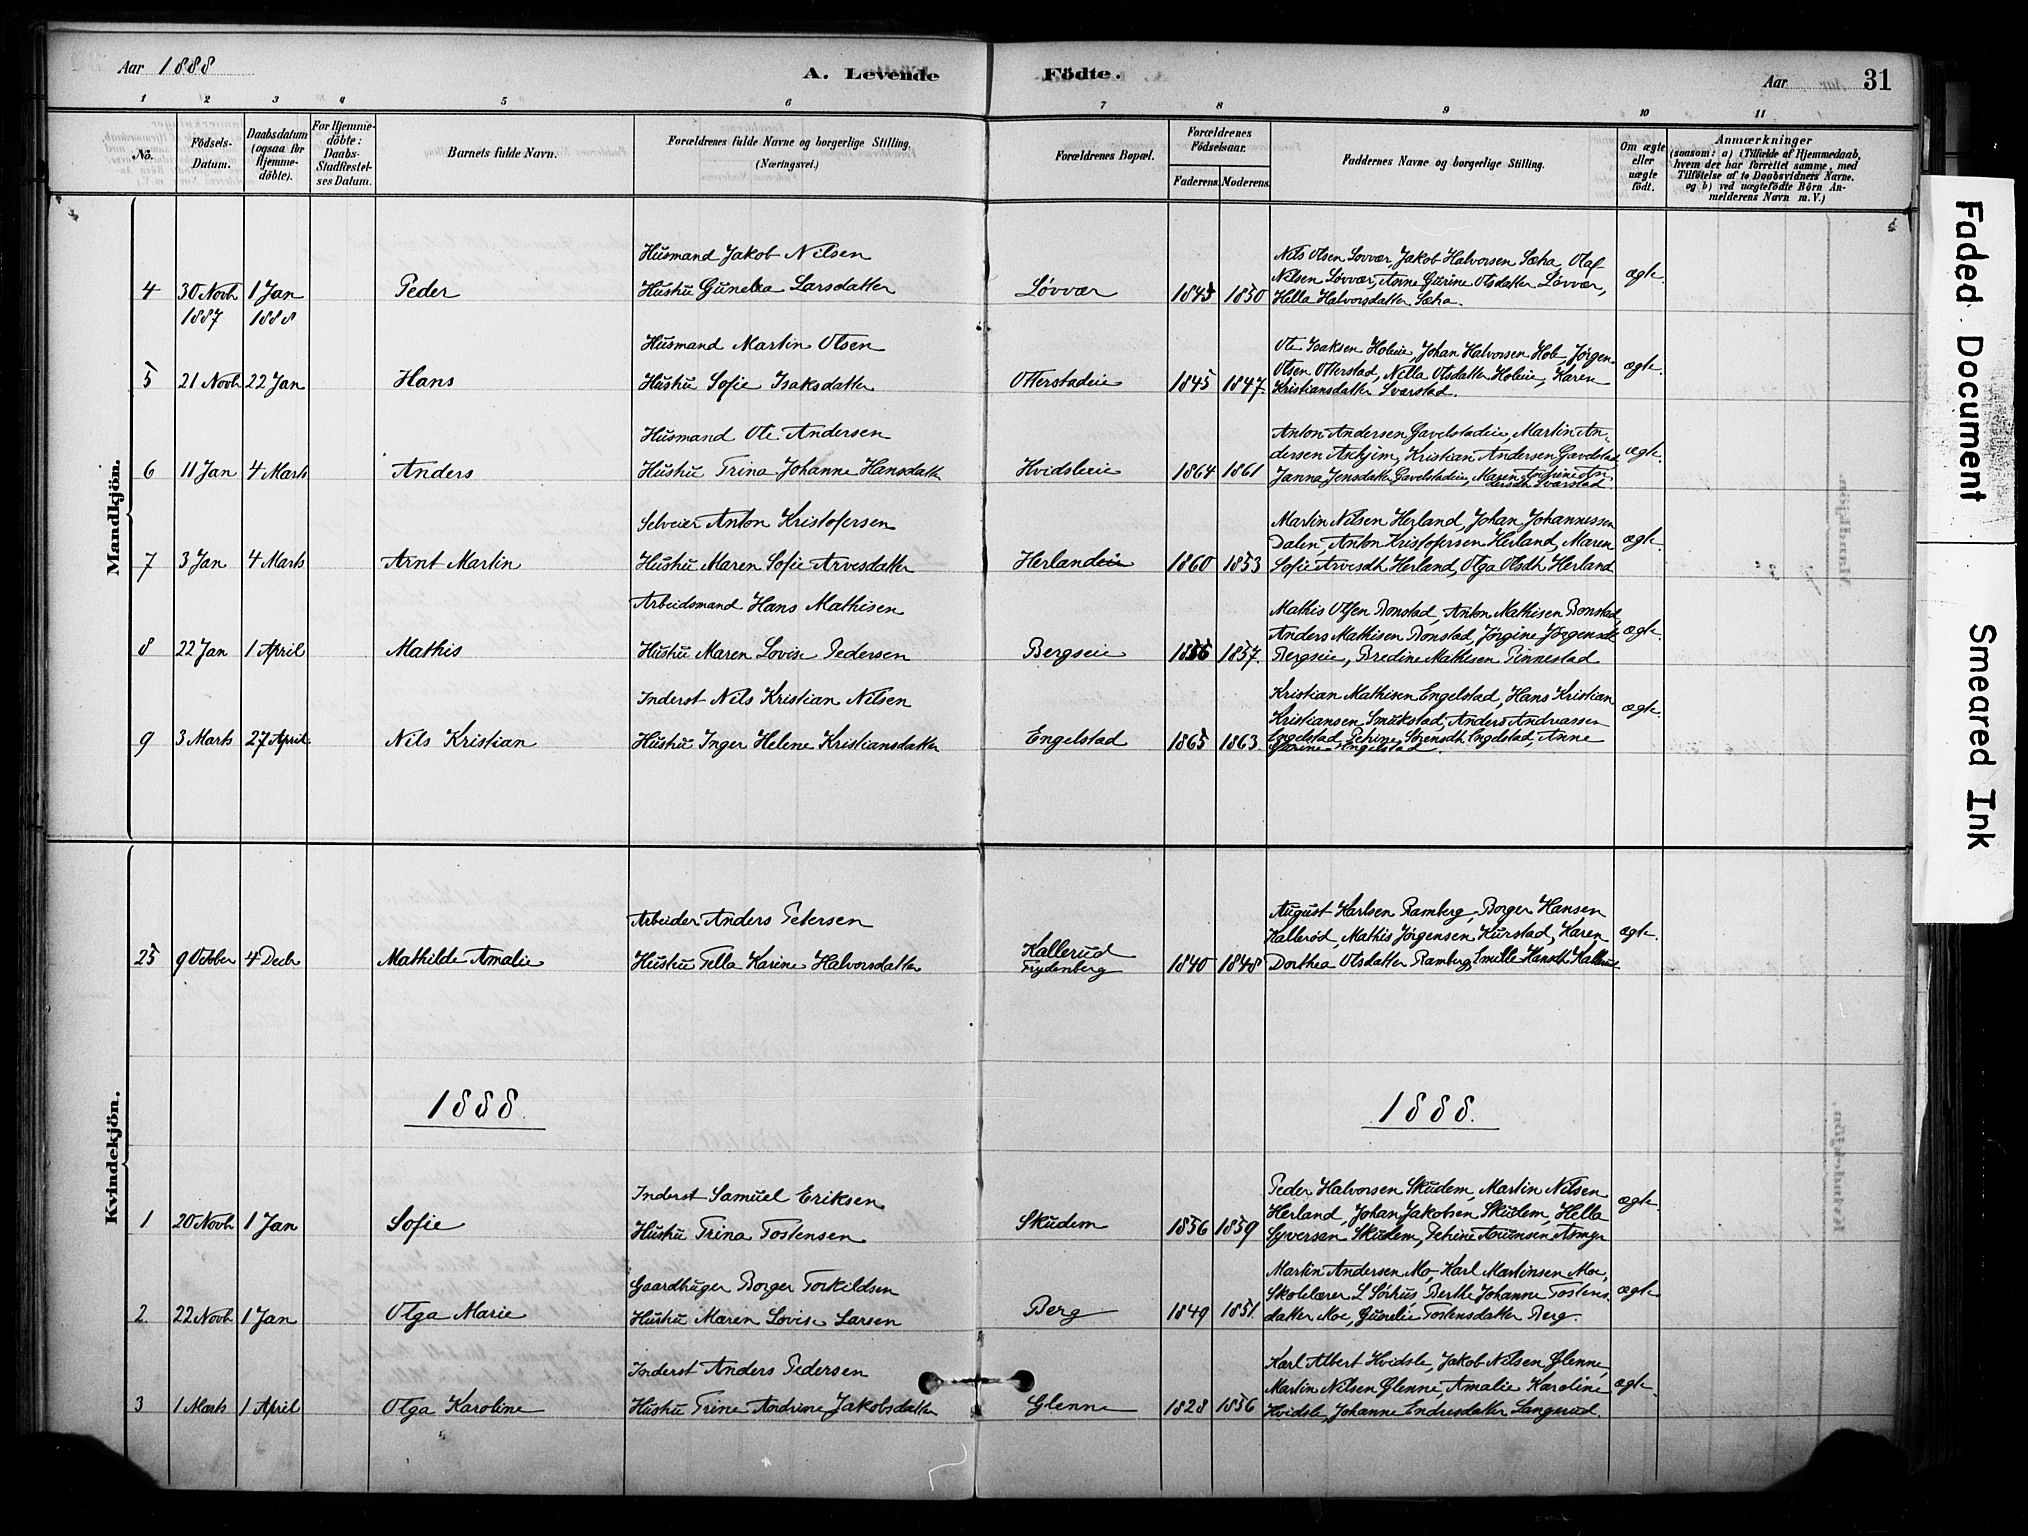 Aar 1888
A. Levende Födte.
Aar 31
1 2 3 4 5 6 7 8 9 10 11
No.
Födsels-Datum.
Daabsdatum (ogsaa for Hjemme-döbte).
For Hjemme-döbte: Daabs-Stadfæstel-ses Datum.
Barnets fulde Navn.
Forældrenes fulde Navne og borgerlige Stilling. (Næringsvei.)
Forældrenes Bopæl.
Forældrenes Födselsaar.
Faderens. Moderens.
Faddernes Navne og borgerlige Stilling.
Om ægte eller uægte födt.
Anmærkninger
(saasom: a) i Tilfælde af Hjemmedaab,
hvem der har forrettet samme, med
Tilföielse af to Daabsvidners Navne.
og b) ved uægtefödte Börn An-
melderens Navn m. V.)
Mandkjön.
Husmand Jakob Nilsen
4 30 Novb 1887 1 Jan 1888 Peder Hustru Gunelia Larsdatter Løvvær 1845 1850
Nils Olsen Løvvær, Jakob Halvorsen Sæha Olaf
Nilsen Løvvær, Anne Gurine Olsdatter Løvvær,
Hella Halvorsdatter Sæha. ægte
Husmand Martin Olsen
5 21 Novb 22 Jan Hans Hustru Sofie Isaksdatter Otterstadeie 1845 1847.
Ole Isaksen Holeie, Johan Halvorsen Hole, Jørgen
Olsen Otterstad, Nilla Olsdatter Holeie, Karen
Kristiansdatter Svarstad. ægte.
Husmand Ole Andersen
6 11 Jan 4 Marts Anders Hustru Trina Johanne Hansdatter Hvidsleeie 1864 1861
Anton Andersen Gavelstadeie, Martin An-
dersen Askjim, Kristian Andersen Gavelstad
Janna Jensdatter Gavelstadeie, Maren Andrine An
dersdtr Svarstad. ægte.
Selveier Anton Kristofersen
7 3 Jan 4 Marts Arnt Martin Hustru Maren Sofie Arvesdatter Herlandeie 1860 1853
Martin Nilsen Herland, Johan Johannessen
Dalen, Anton Kristofersen Herland, Maren
Sofie Arvesdtr Herland, Olga Olsdtr Herland ægte.
Arbeidsmand Hans Mathisen
8 22 Jan 1 April Mathis Hustru Maren Lovise Pedersen Bergseie 1856 1857.
Mathis Olsen Bonstad, Anton Mathisen Bonstad,
Anders Mathisen Bonstad, Jørgine Jørgensdt
Bergseie, Bredine Mathisen Rinnestad ægte.
Inderst Nils Kristian Nilsen
9 3 Marts 27 April. Nils Kristian Hustru Inger Helene Kristiansdatter Engelstad 1865 1863
Kristian Mathisen Engelstad, Hans Kristian
Kristiansen Smukstad, Anders Andreassen
Engelstad Petrine Sørensdtr Engelstad, Anne
Engelstad. ægte.
Kvindekjön.
Arbeider Anders Petersen
25 9 October 4 Decb Mathilde Amalie Hustru Tella Karine Halvorsdatter Kallerud Frydenberg 1840 1848
August Karlsen Ramberg, Borger Hansen
Kallerød, Mathis Jørgensen Kurstad, Karen
Dorthea Olsdatter Ramberg, Emilie Hansdtr Kallerud ægte.
1888. 1888.
Inderst Samuel Eriksen
1 20 Novb 1 Jan Sofie Hustru Trina Tostensen Skudem 1856 1859
Peder Halvorsen Skudem, Martin Nilsen
Herland, Johan Jakobsen Skudem, Hella
Syversen Skudem, Petrine Amundsen Asmyr ægte.
Gaardbruger Borger Torkildsen
2 22 Novb 1 Jan Olga Marie Hustru Maren Lovise Larsen Berg 1849 1851.
Martin Andersen Mo, Karl Martinsen Moe,
Skolelærer L Sørhus Berthe Johanne Tostens.
datter Moe, Gunelie Tostensdatter Berg. ægte
Inderst Anders Pedersen
3 1 Marts 1 April Olga Karoline Hustru Trine Andrine Jakobsdatter Glenne 1828 1856
Karl Albert Hvidsle, Jakob Nilsen Glenne,
Martin Nilsen Glenne, Amalie Karoline
Hvidsle, Johanne Endresdatter Langerud. ægte.
Faded Document
Smeared Ink